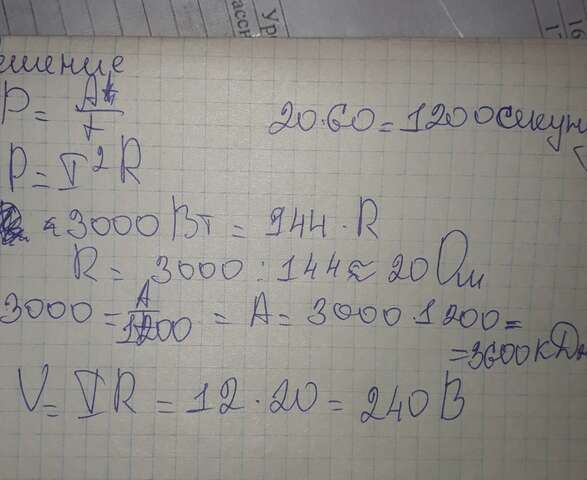 ешение
P = A/t
20·60 = 1200 секун
P = I²R
3000 Вт = 144 · R
R = 3000 : 144 ≈ 20 Ом
3000 = A/1200 = A = 3000·1200 =
= 3600 кДж
V = IR = 12 · 20 = 240 В